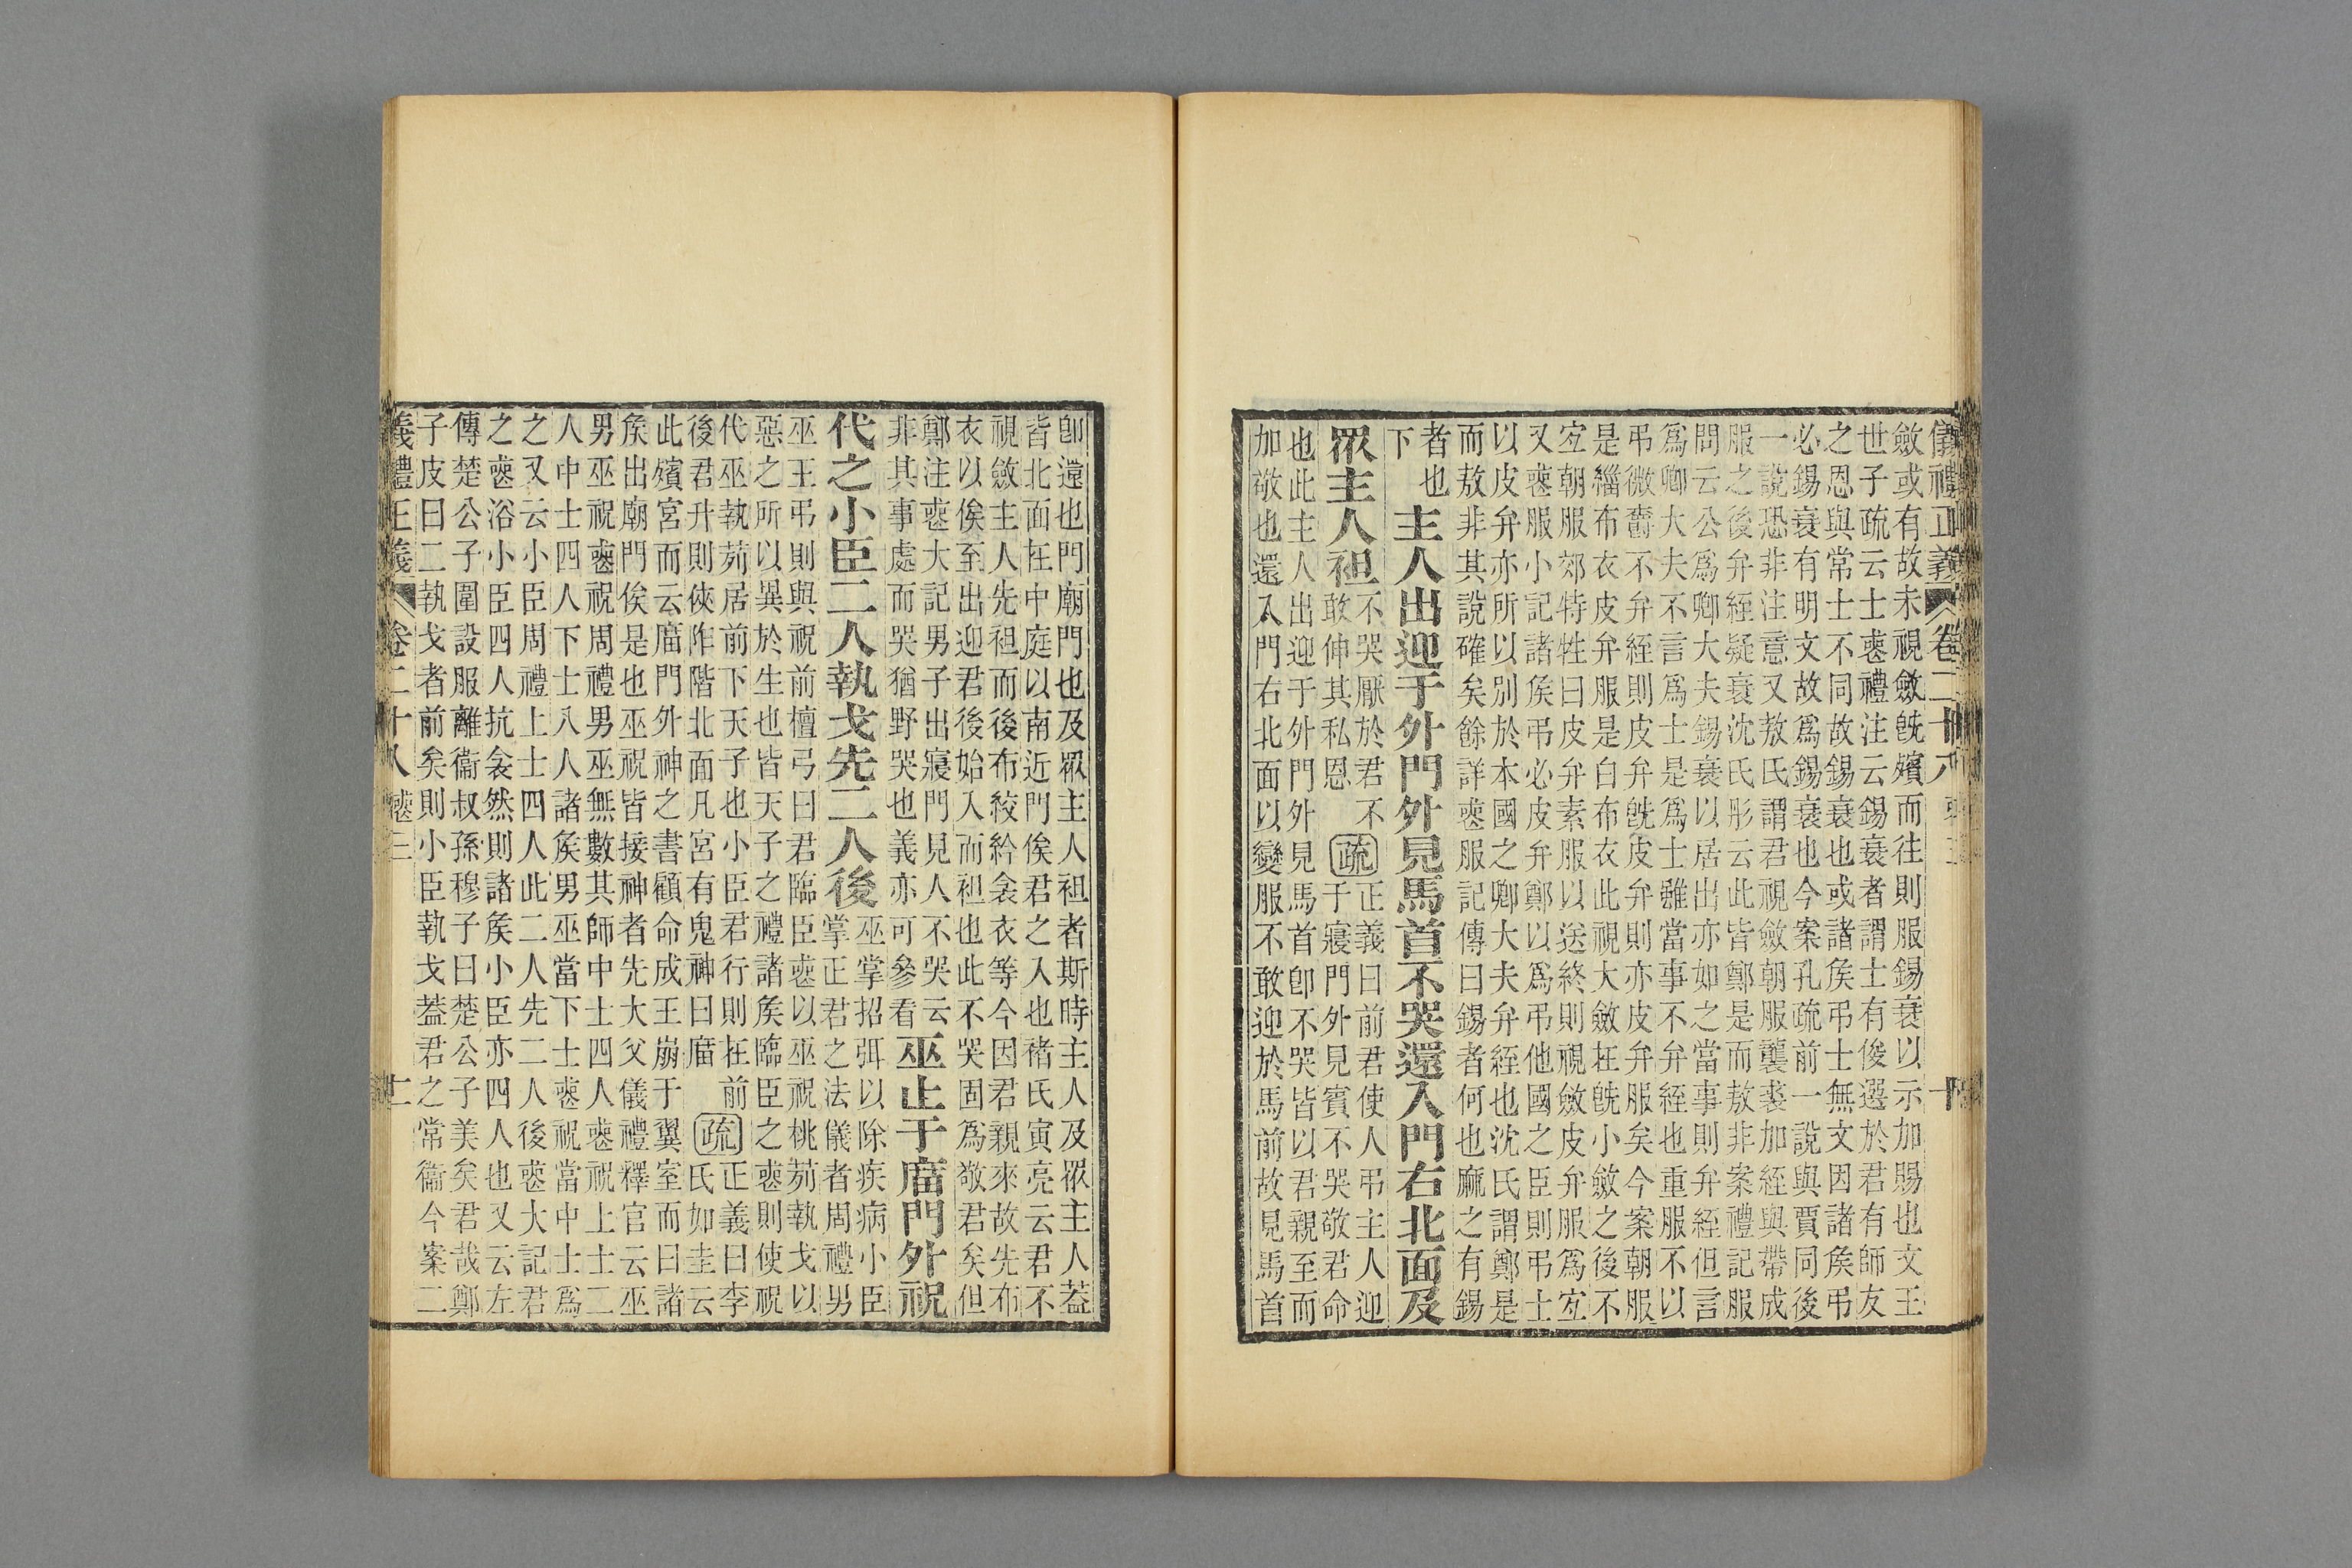 儀禮正義 卷二十八 十
斂或有故未視斂旣殯而往則服錫衰以示加賜也文王
世子疏云士䘮禮注云錫衰者謂士有俊選於君有師友
之恩與常士不同故錫衰也或諸矦弔士無文因諸矦弔
必錫衰有明文故爲錫衰也今案孔疏前一說與賈同後
一說恐非注意又敖氏謂君視斂朝服襲裘加絰與帶成
服之後弁絰疑衰沈氏彤云此皆鄭是而敖非案禮記服
問云公爲卿大夫錫衰以居出亦如之當事則弁絰但言
爲卿大夫不言爲士是爲士雖當事不弁絰也重服不以
弔微爵不弁絰則皮弁旣皮弁則亦皮弁服矣今案朝服
是緇布衣皮弁服是白布衣此視大斂在旣小斂之後不
宐朝服郊特牲曰皮弁素服以送終則視斂皮弁服爲宐
又䘮服小記諸矦弔必皮弁鄭以爲弔他國之臣則弔士
以皮弁亦所以別於本國之卿大夫弁絰也沈氏謂鄭是
而敖非其說確矣餘詳䘮服記傳曰錫者何也麻之有錫
者也
下
主人出迎于外門外見馬首不哭還入門右北面及
眾主人袒
不哭厭於君不
敢伸其私恩
疏
正義曰前君使人弔主人迎
于寢門外見賓不哭敬君命
也此主人出迎于外門外見馬首卽不哭皆以君親至而
加敬也還入門右北面以變服不敢迎於馬前故見馬首
卽還也門廟門也及眾主人袒者斯時主人及眾主人葢
皆北面在中庭以南近門俟君之入也褚氏寅亮云君不
視斂主人先袒而後布絞紟衾衣等今因君親來故先布
衣以俟至出迎君後始入而袒也此不哭固爲敬君矣但
鄭注䘮大記男子出寢門見人不哭云
非其事處而哭猶野哭也義亦可參看
巫止于廟門外祝
代之小臣二人執戈先二人後
巫掌招弭以除疾病小臣
掌正君之法儀者周禮男
巫王弔則與祝前檀弓曰君臨臣䘮以巫祝桃茢執戈以
惡之所以異於生也皆天子之禮諸矦臨臣之䘮則使祝
代巫執茢居前下天子也小臣君行則在前
後君升則俠阼階北面凡宮有鬼神曰廟
疏
正義曰李
氏如圭云
此殯宮而云廟門外神之書顧命成王崩于翼室而曰諸
矦出廟門俟是也巫祝皆接神者先大父儀禮釋官云巫
男巫祝䘮祝周禮男巫無數其師中士四人䘮祝上士二
人中士四人下士八人諸矦男巫當下士䘮祝當中士爲
之又云小臣周禮上士四人此二人先二人後䘮大記君
之䘮浴小臣四人抗衾然則諸矦小臣亦四人也又云左
傳楚公子圍設服離衞叔孫穆子曰楚公子美矣君哉鄭
子皮曰二執戈者前矣則小臣執戈葢君之常衞今案二
義禮正義 卷二十八 䘮三 十一